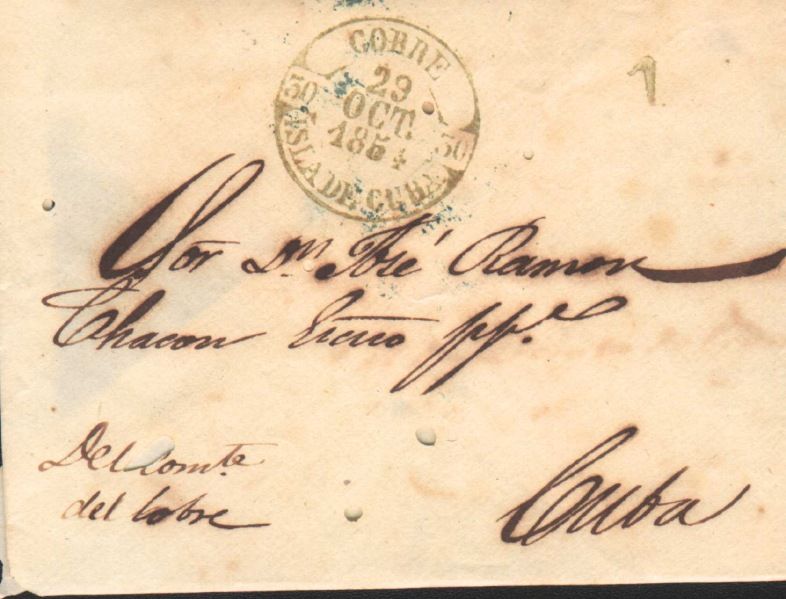 COBRE
1
30 29 30
OCT.
1854
ISLA DE CUBA
Sor Dn José Ramon
Chacon Escno pp.o
Del Comte
del Cobre
Cuba